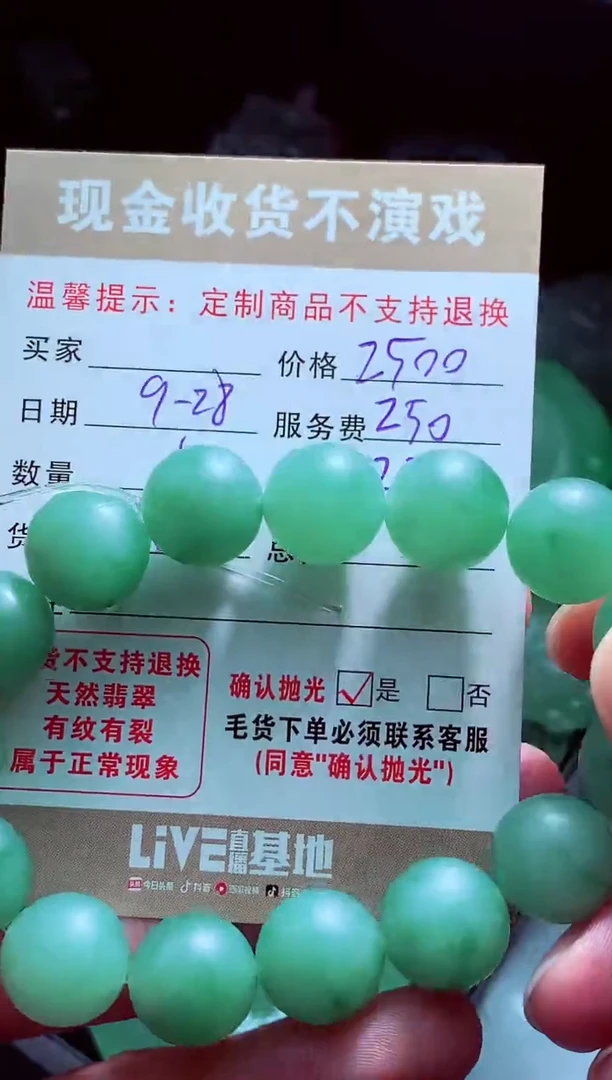 现金收货不演戏
温馨提示：定制商品不支持退换
买家 价格 2500
日期 9-28 服务费 250
数量
货不支持退换
天然翡翠
有纹有裂
属于正常现象
确认抛光 是 否
毛货下单必须联系客服
(同意"确认抛光")
LiVE直播基地
今日头条 抖音 西瓜视频 抖音